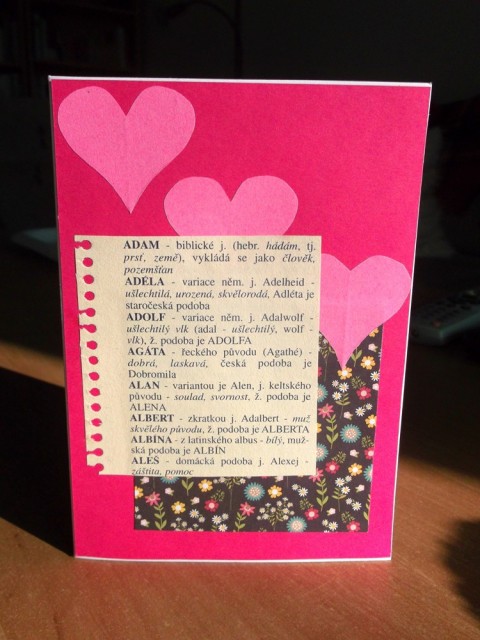 ADAM - biblické j. (hebr. hádám, tj.
prsť, země), vykládá se jako člověk,
pozemšťan
ADÉLA - variace něm. j. Adelheid -
ušlechtilá, urozená, skvělorodá, Adléta je
staročeská podoba
ADOLF - variace něm. j. Adalwolf -
ušlechtilý vlk (adal - ušlechtilý, wolf -
vlk), ž. podoba je ADOLFA
AGÁTA - řeckého původu (Agathé) -
dobrá, laskavá, česká podoba je
Dobromila
ALAN - variantou je Alen, j. keltského
původu - soulad, svornost, ž. podoba je
ALENA
ALBERT - zkratkou j. Adalbert - muž
skvělého původu, ž. podoba je ALBERTA
ALBÍNA - z latinského albus - bílý, muž-
ská podoba je ALBÍN
ALEŠ - domácká podoba j. Alexej -
záštita, pomoc